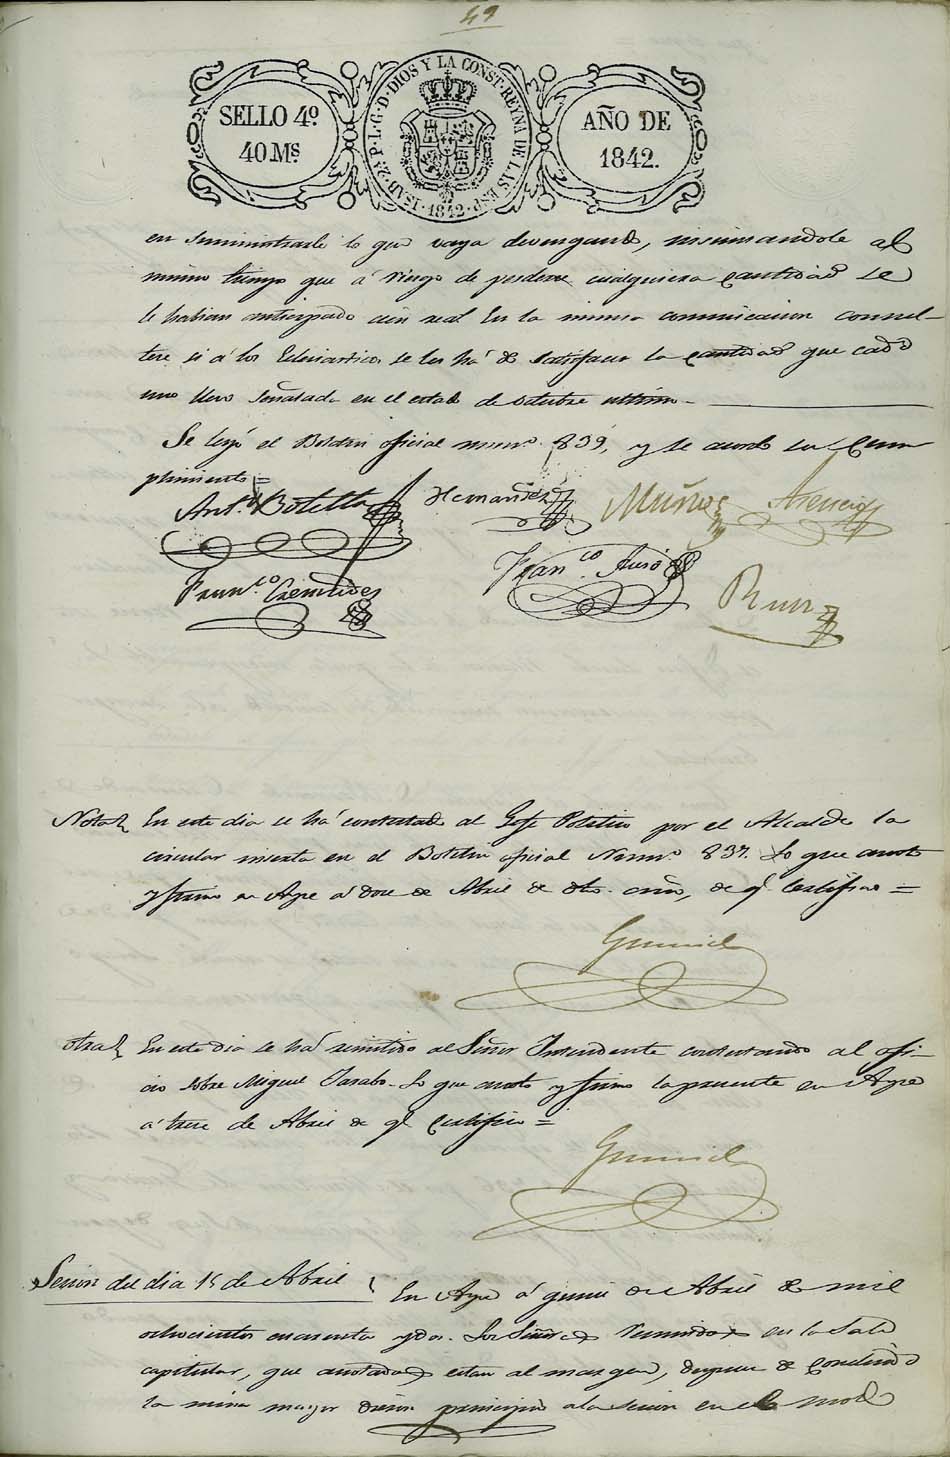 49
SELLO 4º
40 Mˢ
ISAB. 2ª P. L. G. D. DIOS Y LA CONST. REYNA DE LAS ESP. 1842
AÑO DE
1842.
en suministrarle lo que vaya devengando, al
mismo tiempo que á riesgo de perderse cualquiera cantidad se
le habian anticipado cien real En la misma comunicacion consul-
tese si á los Eclesiasticos se les há de satisfacer la cantidad que cada
uno lleva señalada en el estado de octubre ultimo.
Se leyó el Boletin oficial numº. 839, y se acordó su Cum
plimiento =
Antº. Botella Hernandez Muñoz Asencio
Franᶜᵒ. Auró
Franᶜᵒ.
Ruiz
Nota En este dia se há contestado al Gefe Politico por el Alcalde la
circular inserta en el Boletin oficial Numº. 837. Lo que anoto
y firmo en Aspe á doce de Abril de dho. año, de q.ᵉ Certifico =
otra En este dia se há remitido al Señor Intendente contestando al ofi-
cio sobre Miguel Jarabo. Lo que anoto y firmo la presente en Aspe
á trece de Abril de q.ᵉ Certifico =
Sesion del dia 15 de Abril En Aspe á quince de Abril de mil
ochocientos cuarenta y dos. Los Señores reunidos en la Sala
capitular, que anotados estan al margen, despues de concluida
la misa mayor dieron principio a la sesion en el modo